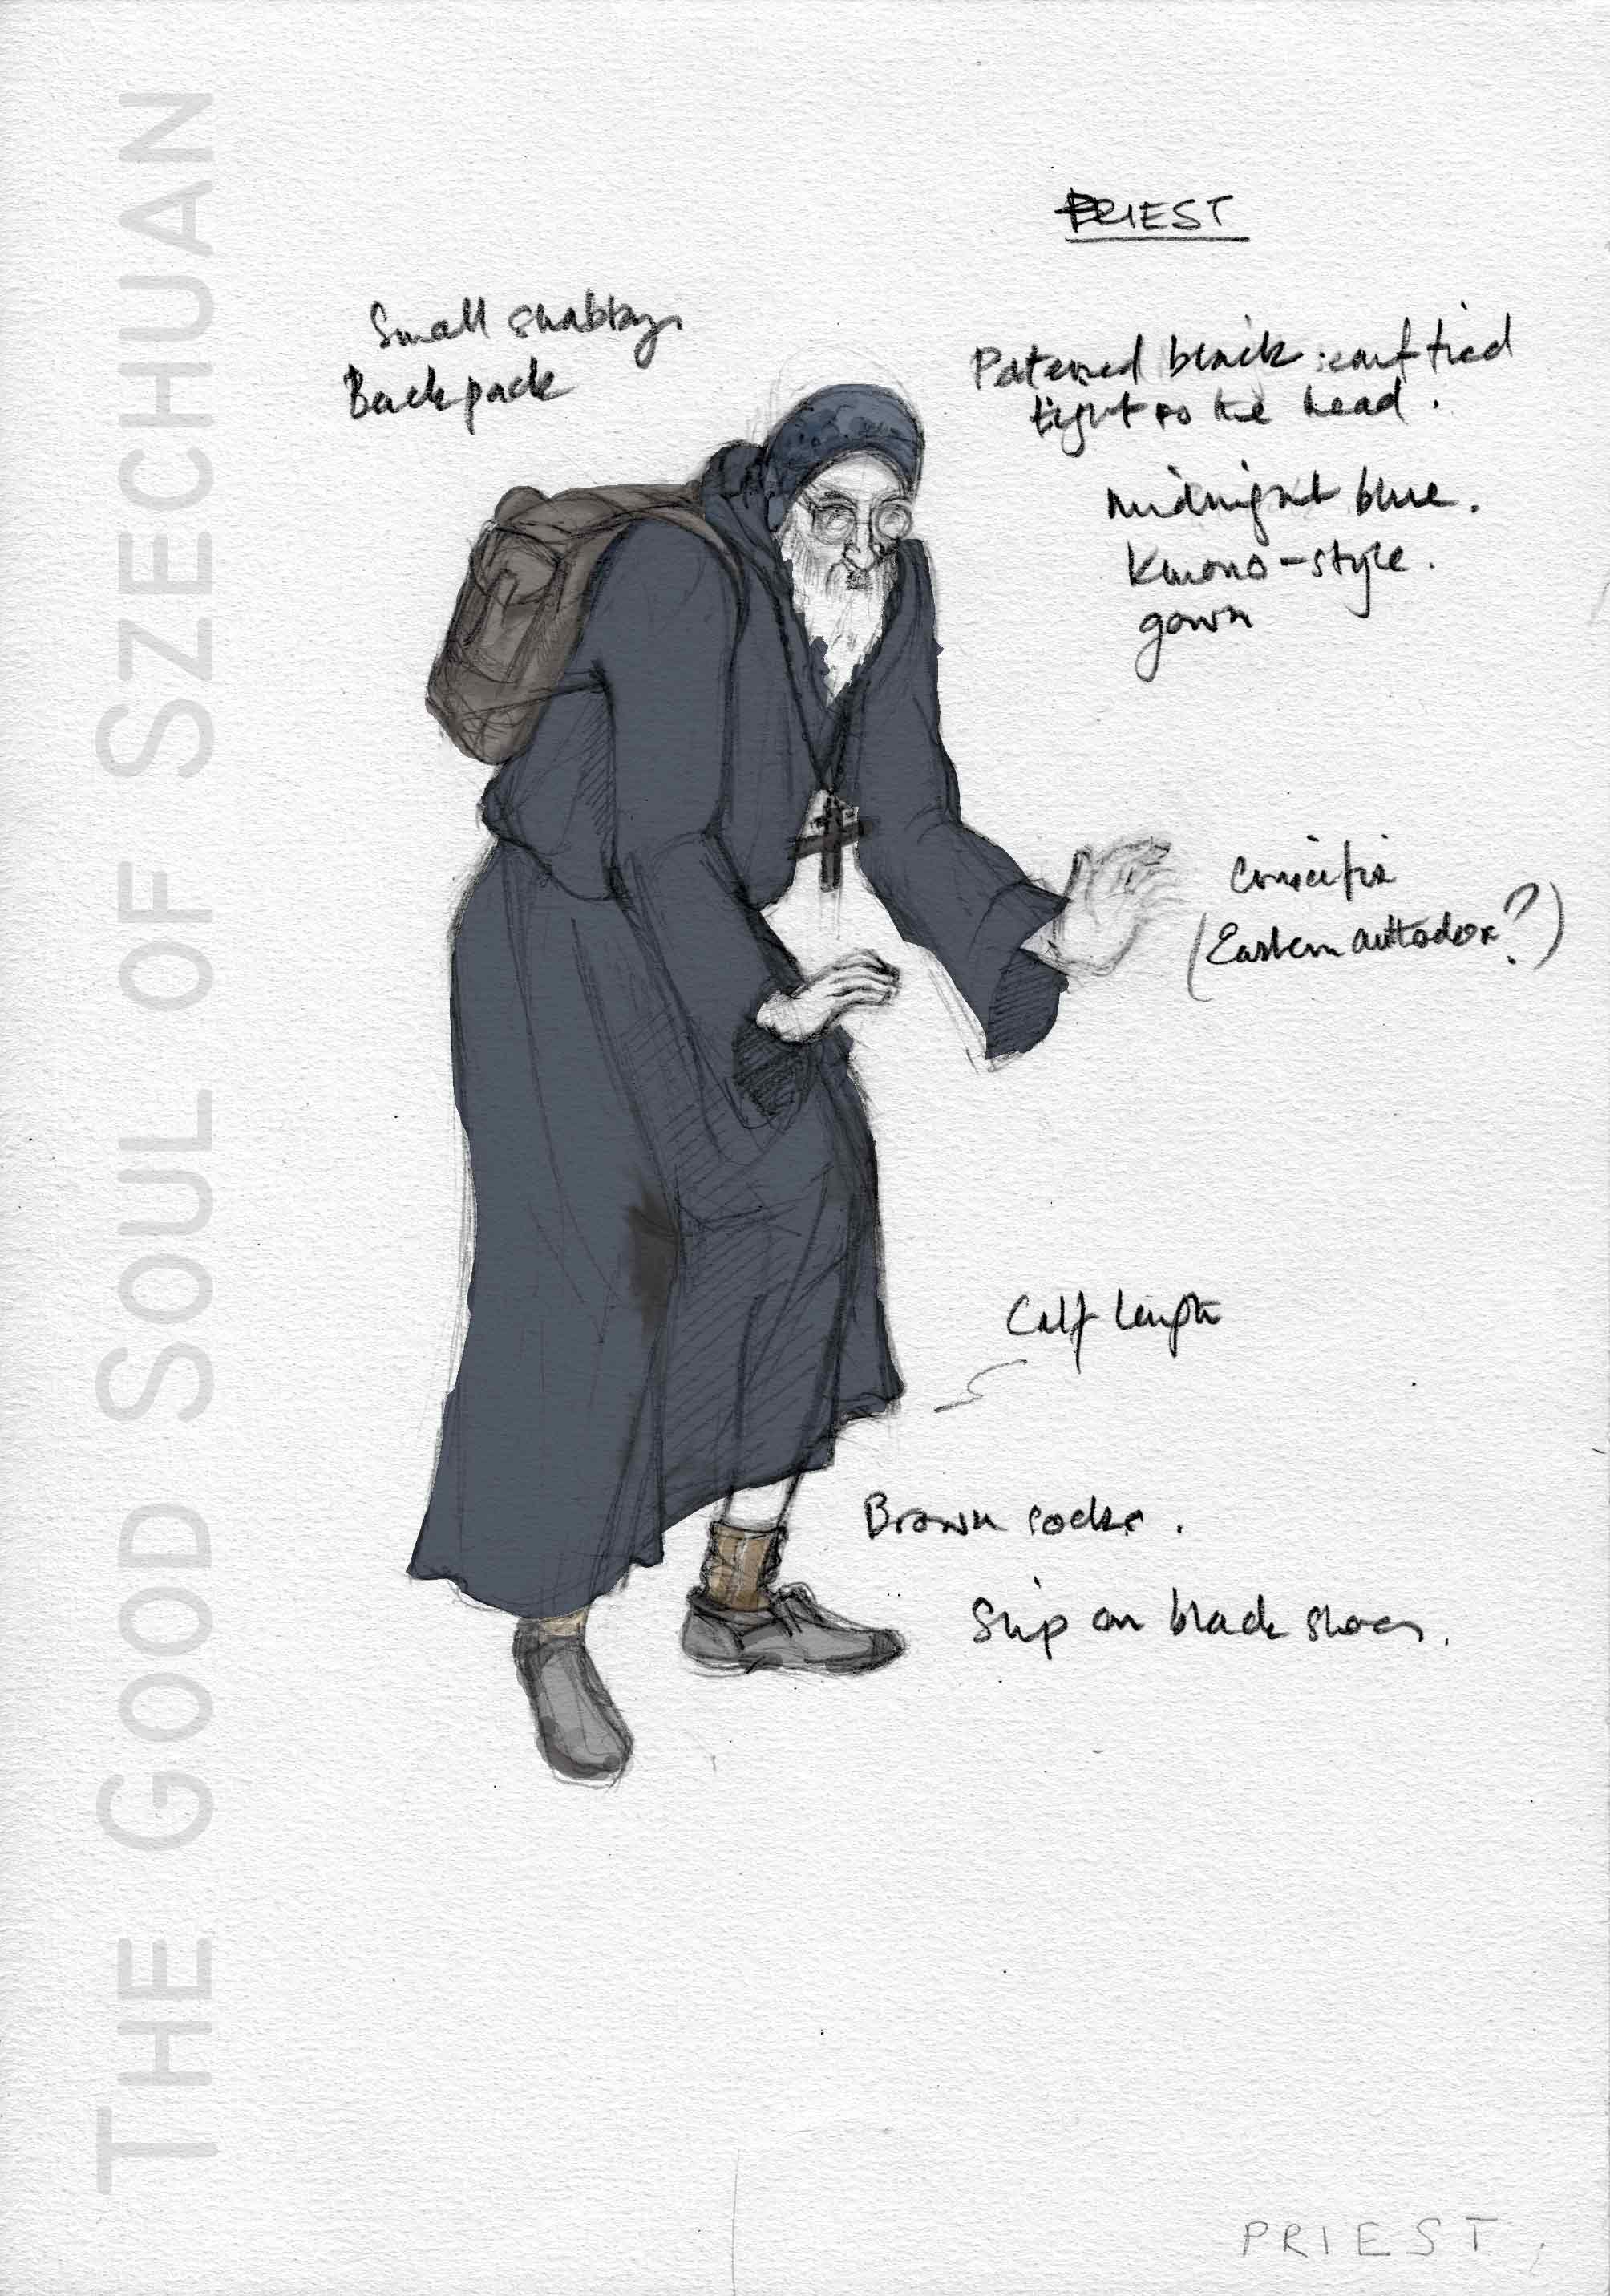 THE GOOD SOUL OF SZECHUAN
PRIEST
Small shabby
Backpack
Paterned black scarf tied
tight to the head.
midnight blue.
Kimono-style.
gown
Crucifix
(Eastern auttodox?)
Calf length
Brown socks.
Slip on black shoes.
PRIEST